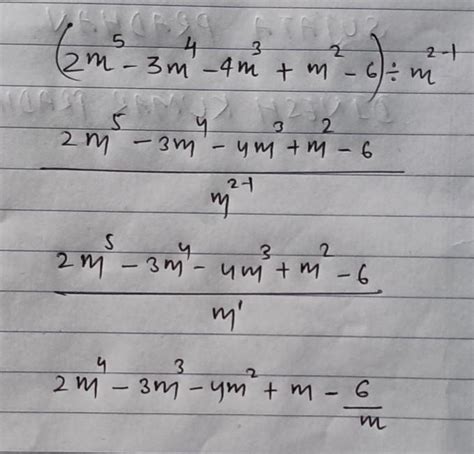 (2m⁵ - 3m⁴ - 4m³ + m² - 6) ÷ m²⁻¹
2m⁵ - 3m⁴ - 4m³ + m² - 6
m²⁻¹
2m⁵ - 3m⁴ - 4m³ + m² - 6
m¹
2m⁴ - 3m³ - 4m² + m - 6/m